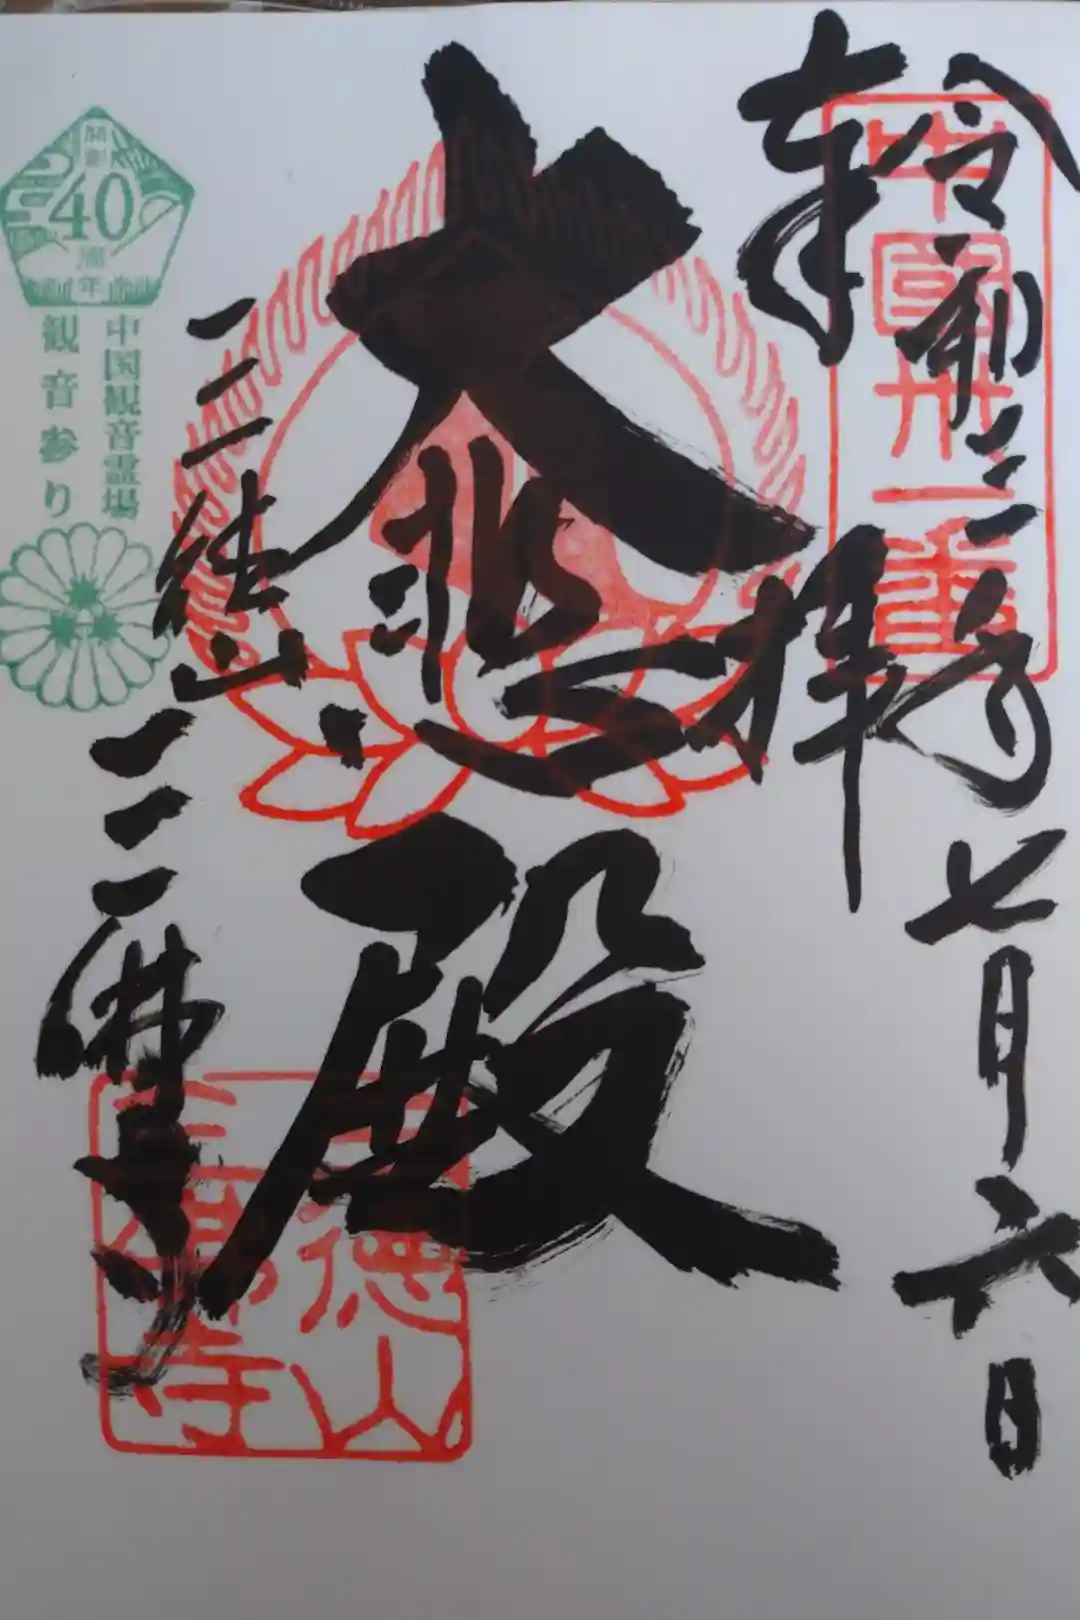 令和三年七月六日
奉拝
中國卅一番
大悲殿
三徳山三佛寺
三徳山
三佛寺
開創
40
周年
中国観音霊場
観音参り